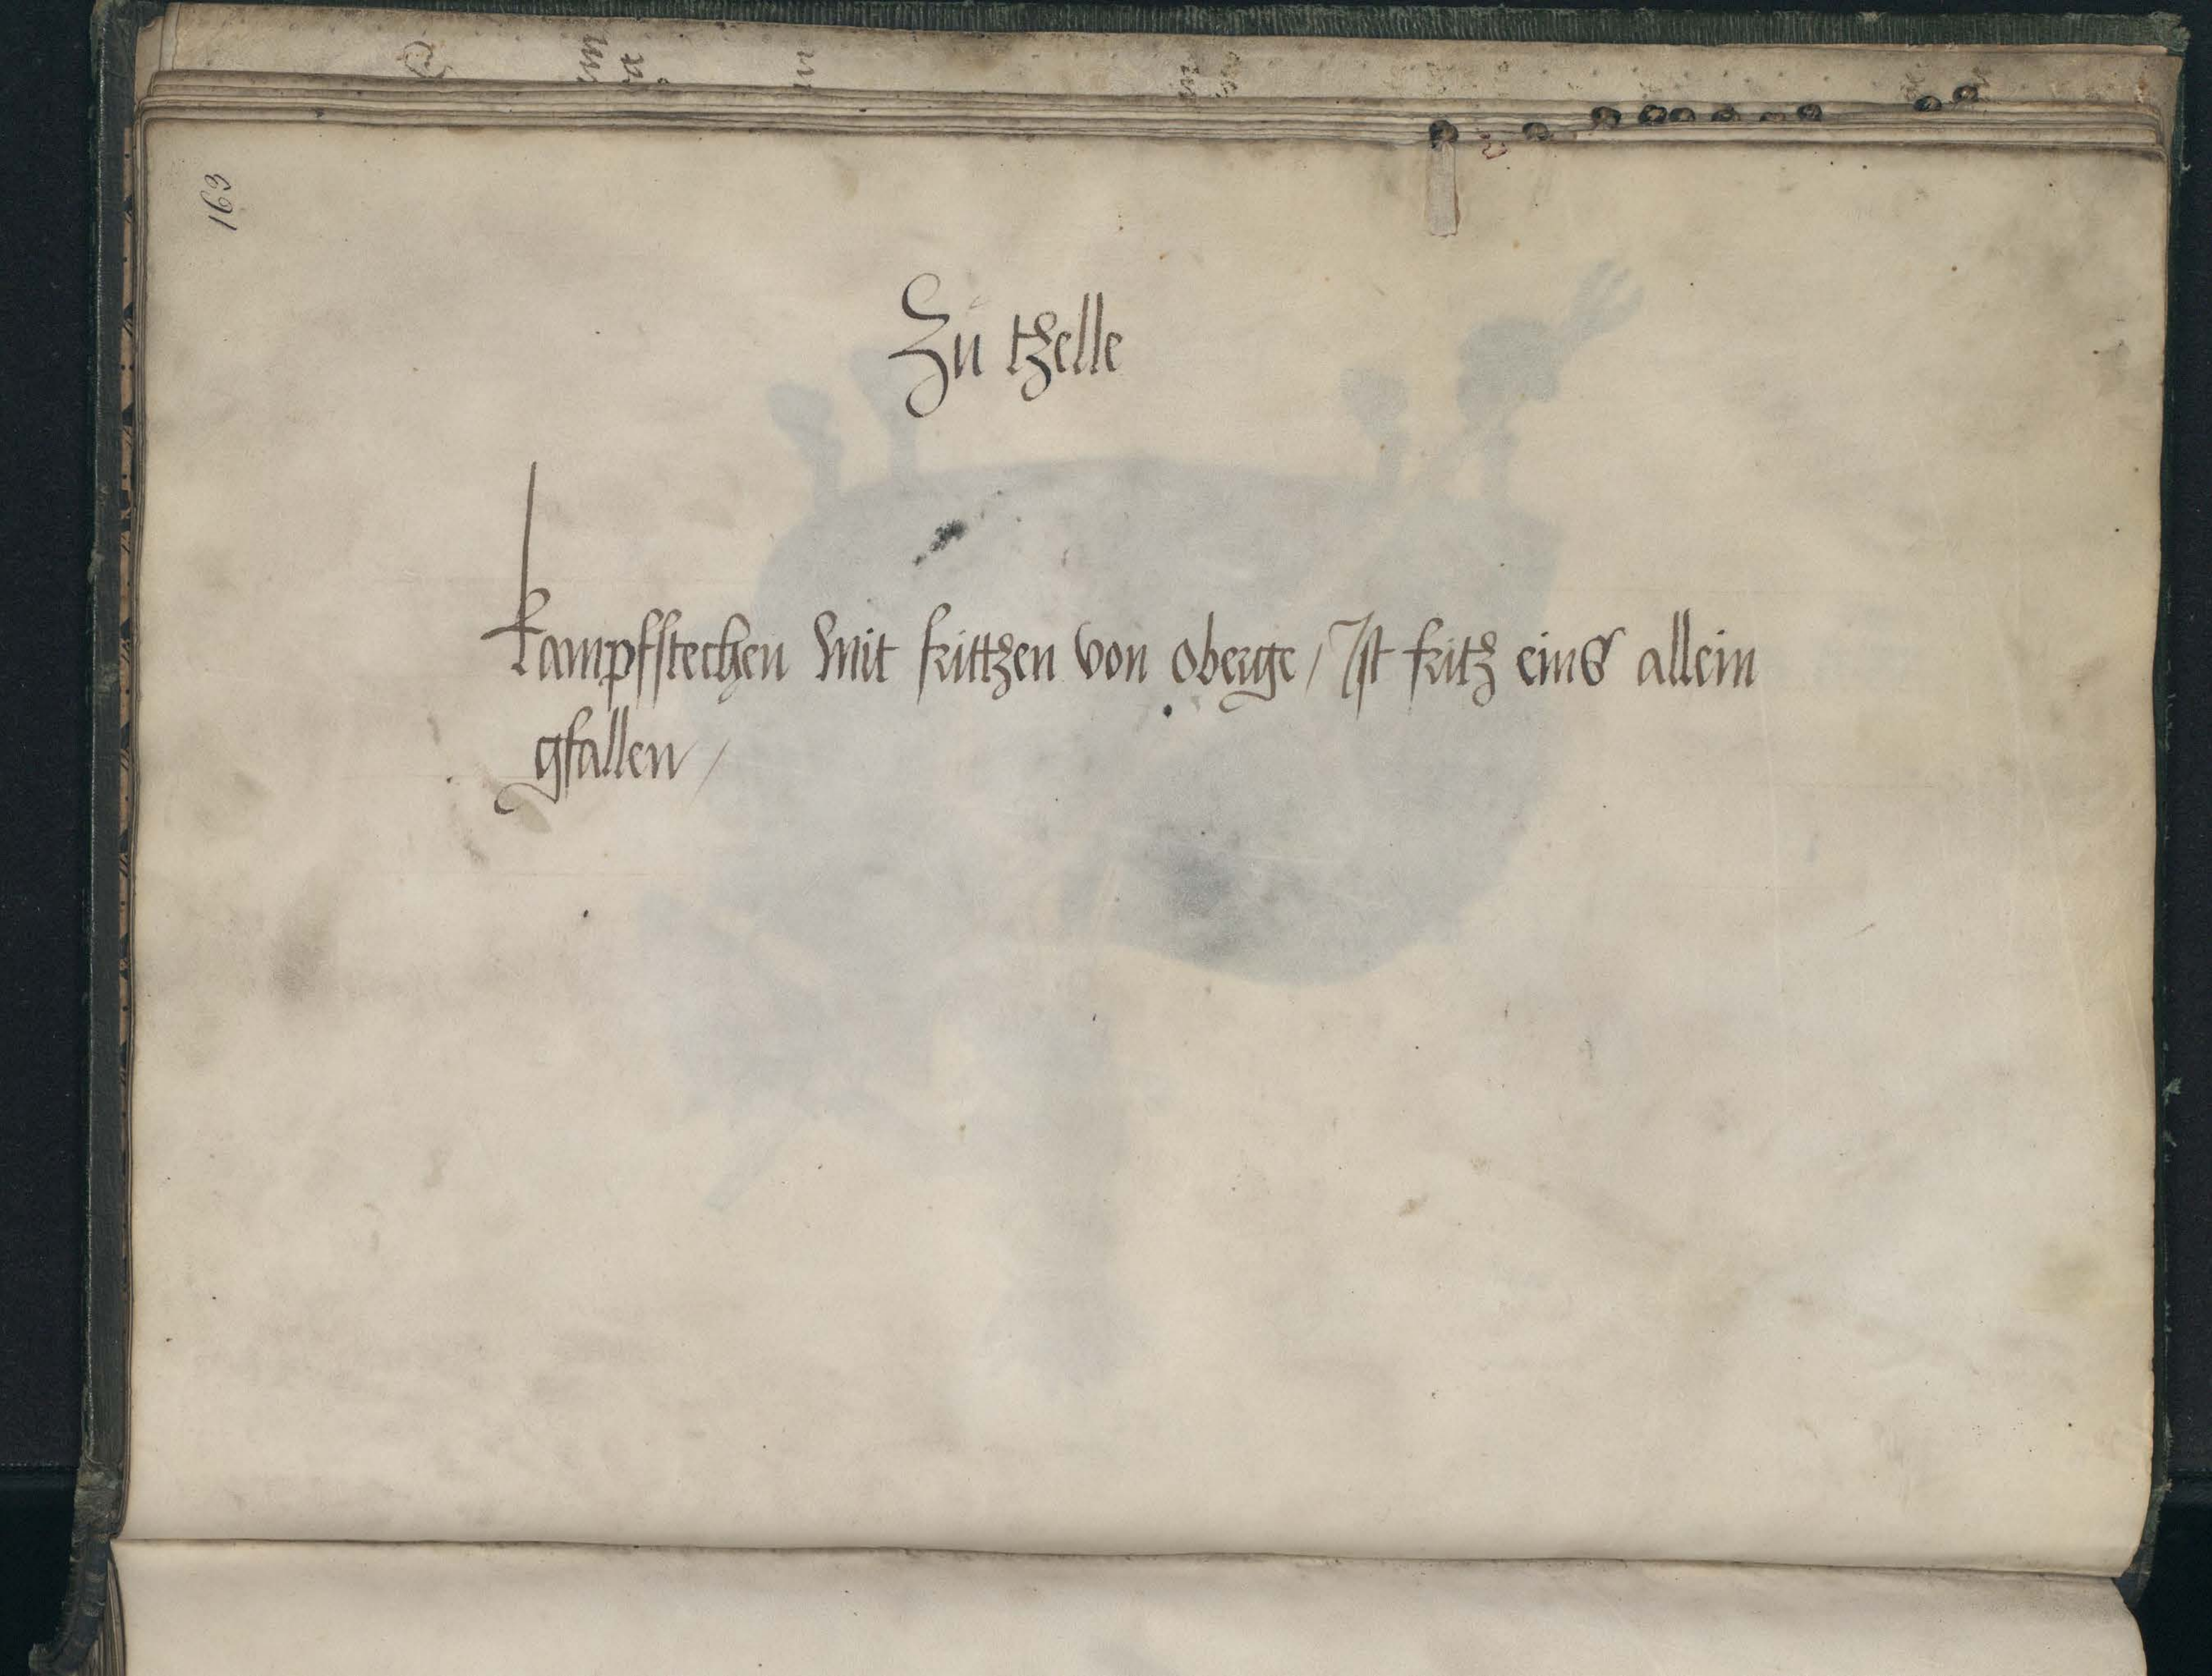 163
Zu tzelle
Kampfstechen mit frittzen von oberge / Ist fritz eins allein
gfallen /